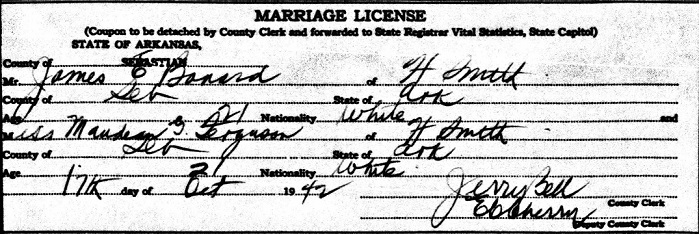 MARRIAGE LICENSE
(Coupon to be detached by County Clerk and forwarded to State Registrar Vital Statistics, State Capitol)
STATE OF ARKANSAS,
County of SEBASTIAN
Mr. James E Bonard of Ft Smith
County of Seb State of Ark
Age 21 Nationality White and
Miss Maudean G. Ferguson of Ft Smith
County of Seb State of Ark
Age 21 Nationality White
17th day of Oct 1942
Jerry Bell County Clerk
Deputy County Clerk